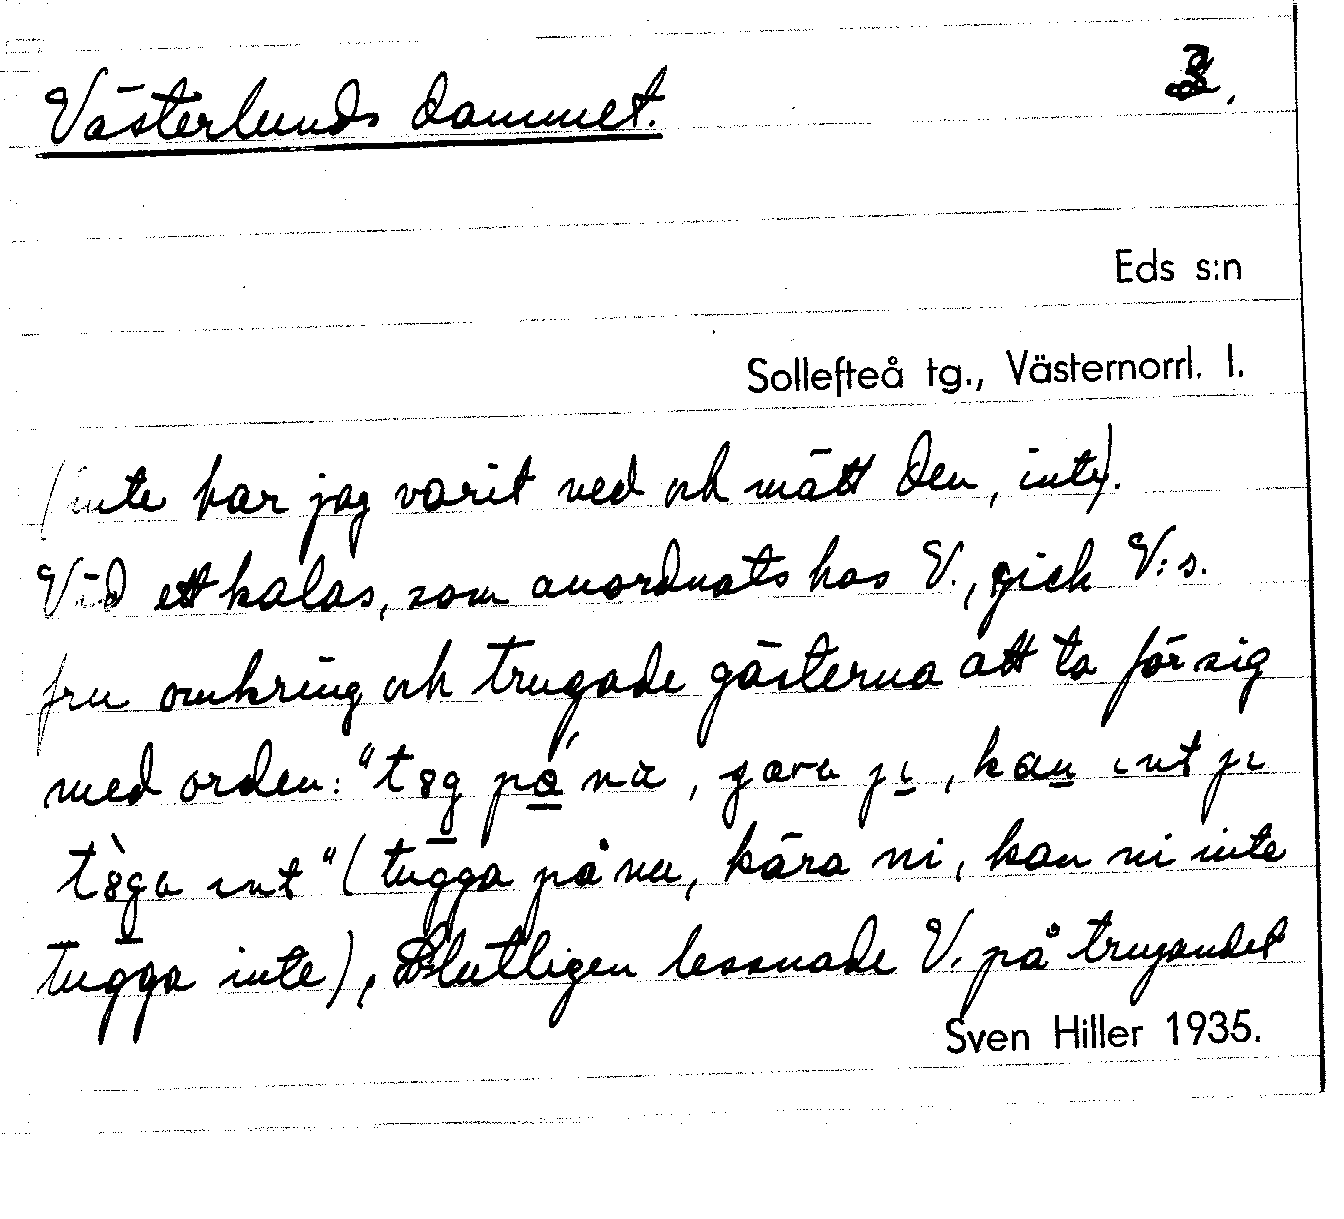 Västerlunds dammet. 3.
Eds s:n
Sollefteå tg., Västernorrl. l.
(inte har jag varit ned och mätt den, inte).
Vid ett kalas, som anordnats hos V., gick V:s.
fru omkring och trugade gästerna att ta för sig
med orden: "
int "(tugga på nu, kära ni, kan ni inte
tugga inte), Slutligen lessnade V. på trugandet
Sven Hiller 1935.